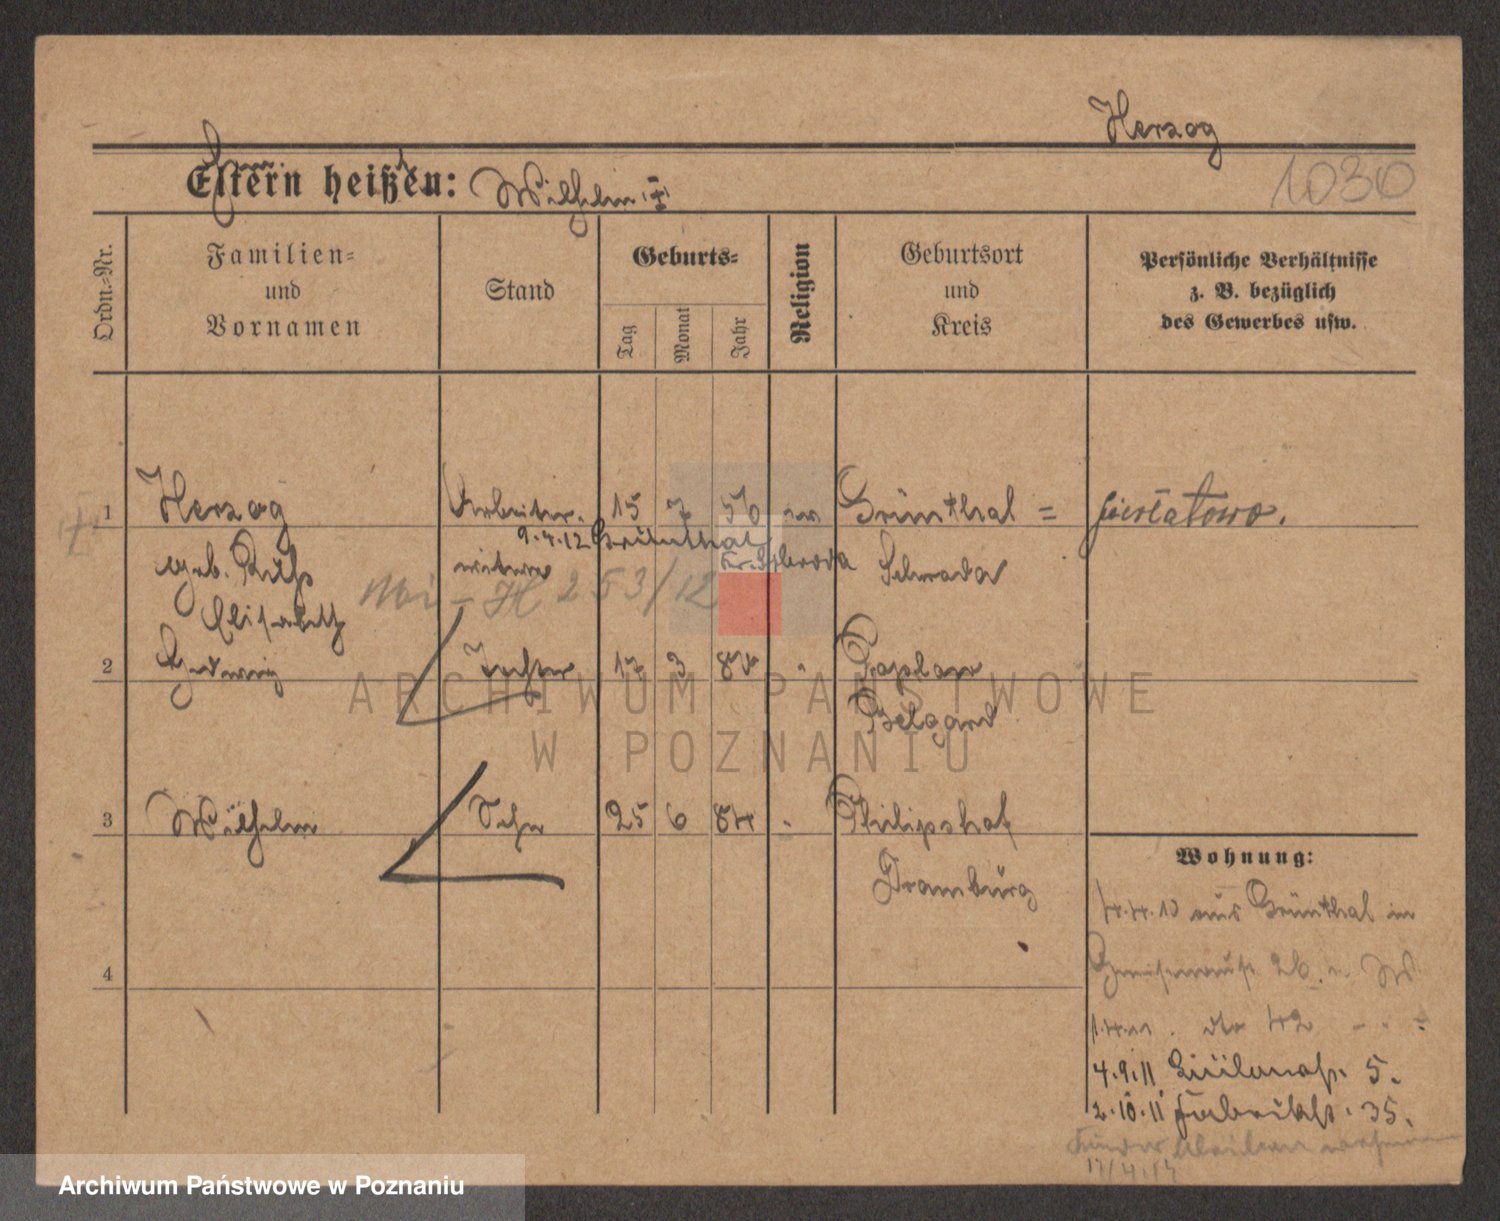 Herzog
Eltern heißen: Wilhelm I
1030
Ordn.-Nr.
Familien-
und
Vornamen
Stand
Geburts-
Tag
Monat
Jahr
Religion
Geburtsort
und
Kreis
Persönliche Verhältnisse
z. B. bezüglich
des Gewerbes usw.
1 Herzog Arbeiter. 15 7 56 ev Grünthal =
9.4.12 Grünthal
geb. witwe Schroda
H 253/12
Elisabeth
2 Hedwig Tochter 17 3 Gaplow
Belgard
3 Wilhelm Sohn 25 6 84 " Philipshof
Dramburg
4
Wohnung:
4.4.10 aus Grünthal in
Gneisenaustr 26. n W
1.4.11. do 42 - - -
4.9.11 5.
2.10.11 Fabrikstr. 35.
17/4.12
ARCHIWUM PAŃSTWOWE
W POZNANIU
Archiwum Państwowe w Poznaniu